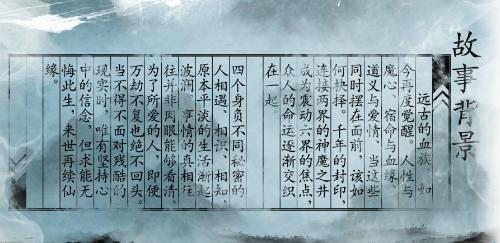 故事背景
远古的血族,如
今再度觉醒。人性与
魔心、宿命与血缘、
道义与爱情、当这些
同时摆在面前,该如
何抉择。千年的封印,
连接两界的神魔之井
成为震动六界的焦点,
众人的命运逐渐交织
在一起。
四个身负不同秘密的
人相遇、相识、相知,
原本平淡的生活渐起
波澜,事情的真相往
往并非肉眼能够看清,
为了所爱的人,即便
万劫不复也绝不回头。
当不得不面对残酷的
现实时,唯有坚持心
中的信念,但求能无
悔此生,来世再续仙
缘。